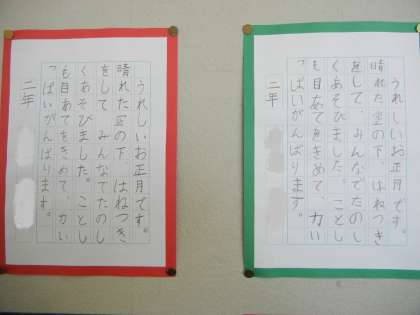 うれしいお正月です。
晴れた空の下、はねつき
をして、みんなでたのし
くあそびました。ことし
も目あてをきめて、力い
っぱいがんばります。
二年
うれしいお正月です。
晴れた空の下、はねつき
をして、みんなでたのし
くあそびました。ことし
も目あてをきめて、力い
っぱいがんばります。
二年